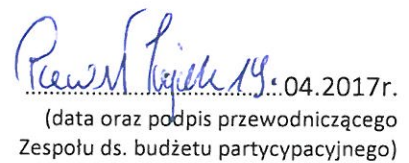 19.04.2017r.
(data oraz podpis przewodniczącego
Zespołu ds. budżetu partycypacyjnego)